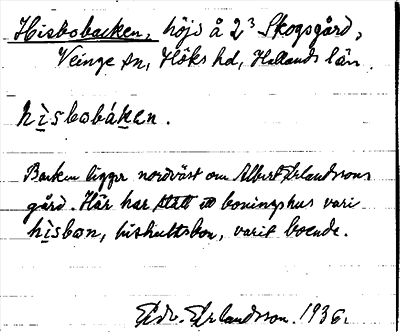 Hisbobacken, höjd å 2³ Skogsgård,
Veinge sn, Höks hd, Hallands län.
hìsbobákεn.
Backen ligger nordväst om Albert Erlandssons
gård. Här har stått ett boningshus vari
hìsbon, hishultsbon, varit boende.
Edv. Erlandsson. 1936.